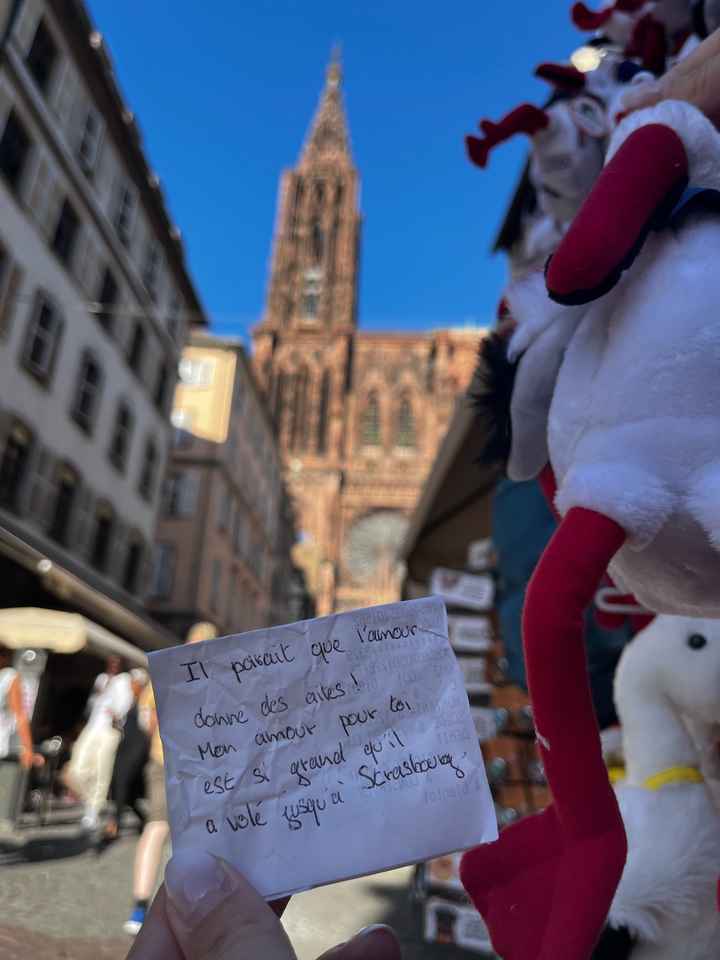 Il parait que l'amour
donne des ailes!
Mon amour pour toi
est si grand qu'il
a volé jusqu'à Strasbourg.